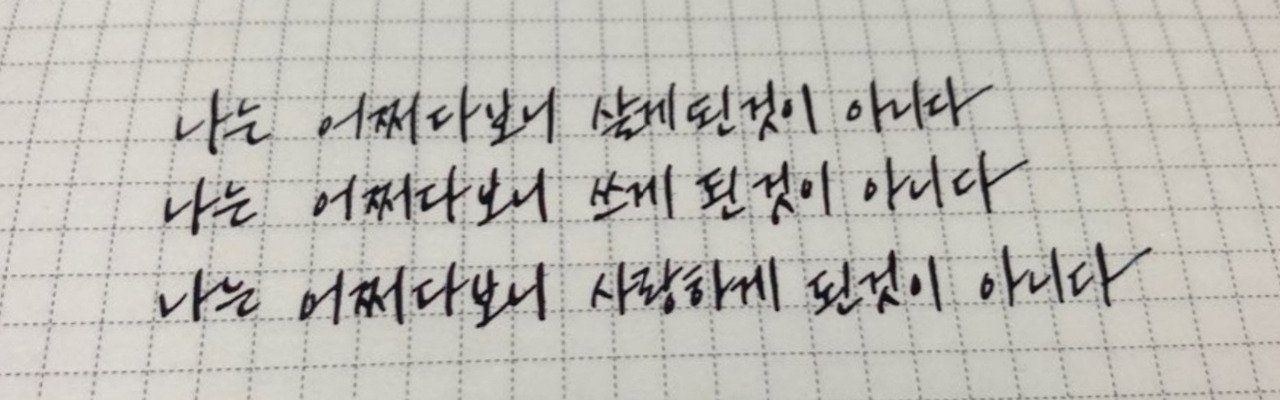 나는 어쩌다보니 살게된것이 아니다
나는 어쩌다보니 쓰게 된것이 아니다
나는 어쩌다보니 사랑하게 된것이 아니다